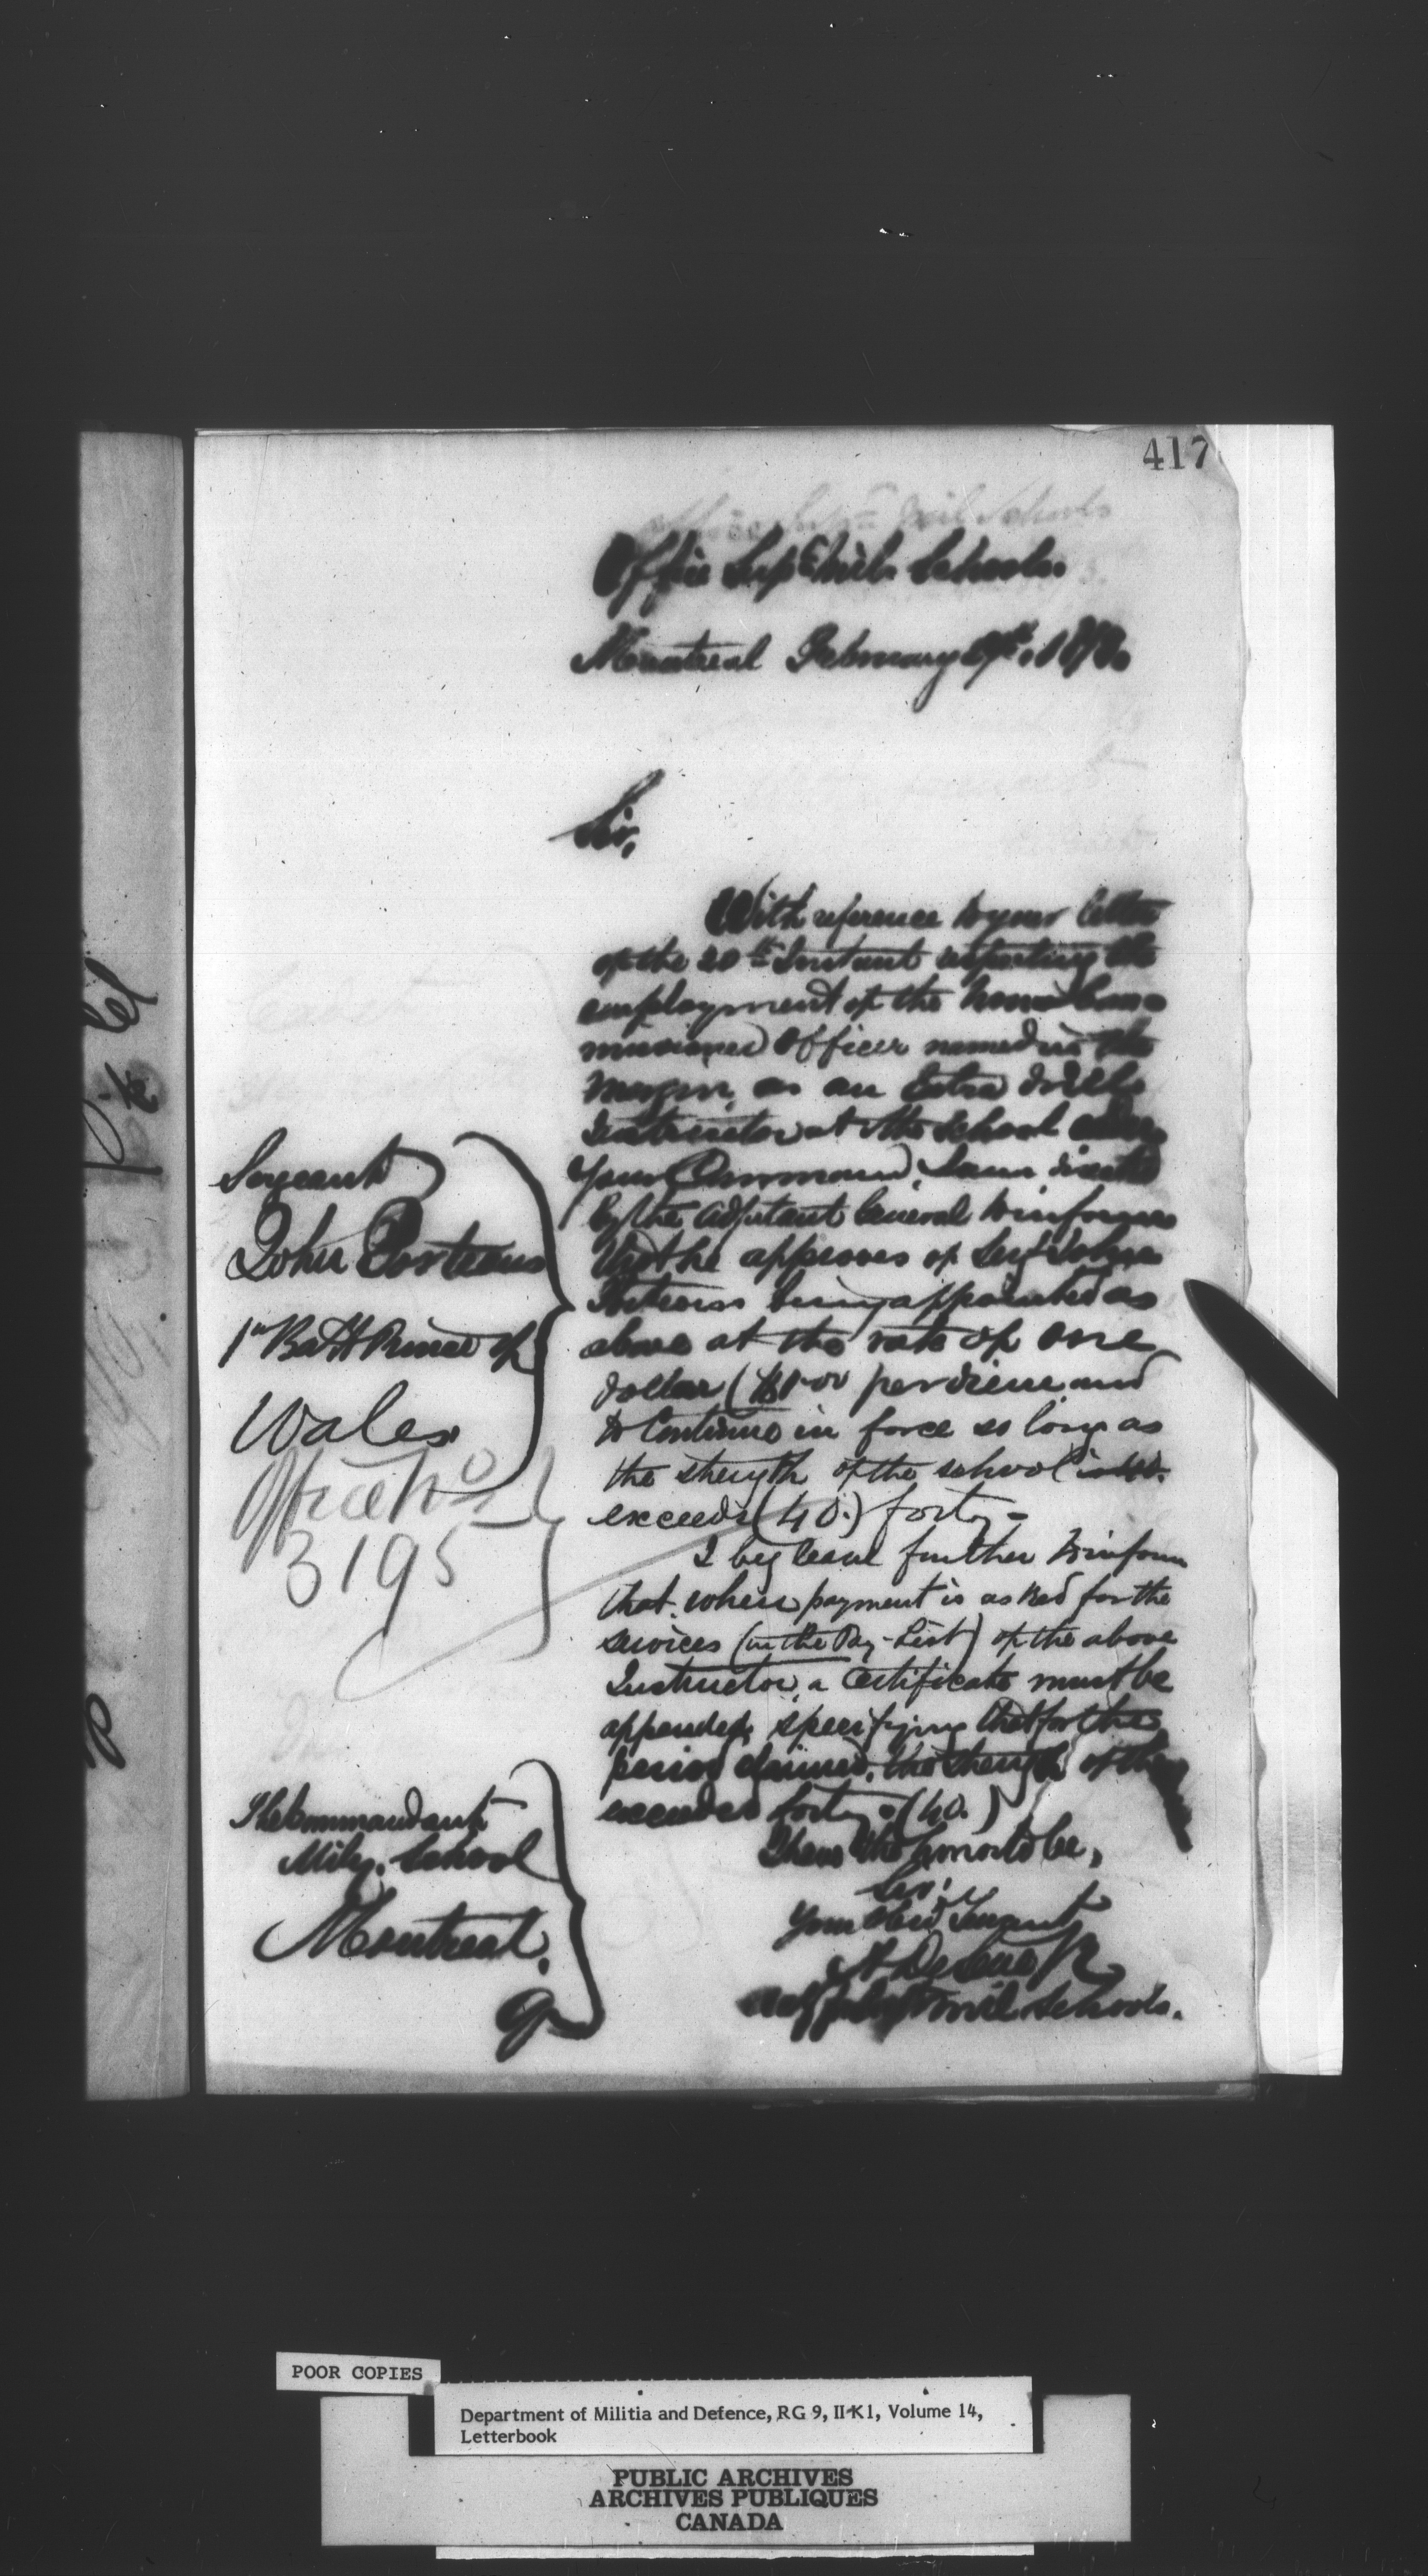 417
Office Supt Mil. Schools.
Montreal February
Sir,
With reference to your letter
of the 20th Instant reporting the
employment of the Non Com=
missioned Officer named in the
margin, as an Extra Drill
Instructor at the School under
Your Command, I am directed
by the Adjutant General to inform
that he approves of Sergt John
Porteous being appointed as
above at the rate of one
dollar ($1.00 per diem and
to Continue in force so long as
the strength of the school
exceeds (40.) forty =
I beg leave further to inform
that when payment is asked for the
services (in the Pay-List) of the above
Instructor, a Certificate must be
appended, specifying that for the
period claimed, the strength of the
exceeded forty = (40.)
I have the honor to be,
Sir,
Your Obed Servant
Mil Schools.
Sergeant
John Porteous
1st Batt Prince of
Wales
Office No
3195
The Commandant
Mily. School
Montreal.
POOR COPIES
Department of Militia and Defence, RG 9, II-K1, Volume 14,
Letterbook
PUBLIC ARCHIVES
ARCHIVES PUBLIQUES
CANADA